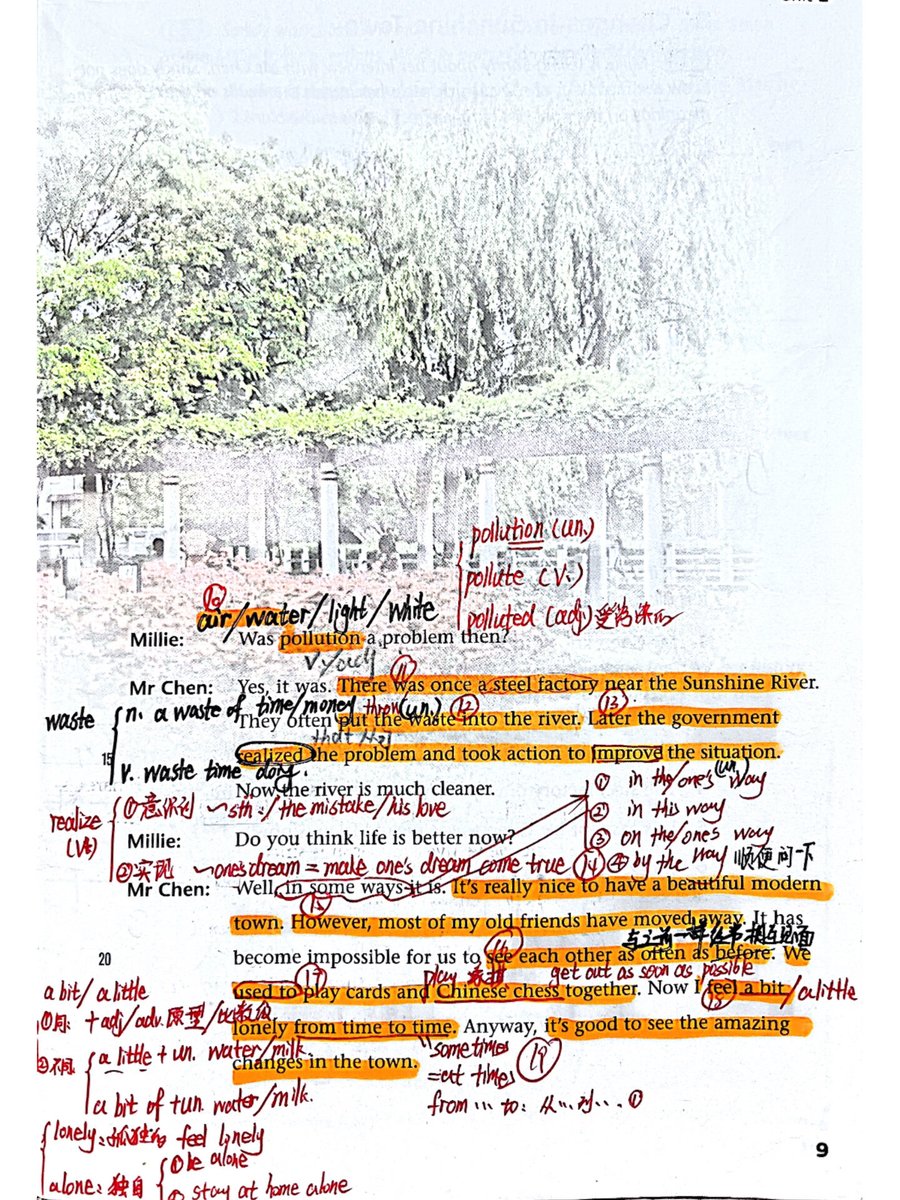 pollution (un.)
pollute (v.)
⑩
air/water/light/white
polluted (adj.) 受污染的
Millie: Was pollution a problem then?
v./adj
⑪
Mr Chen: Yes, it was. There was once a steel factory near the Sunshine River.
waste
n. a waste of time/money
(un.) ⑫ ⑬
They often put the waste into the river. Later the government
15 realized the problem and took action to improve the situation.
v. waste time doing.
① in the/one's way
(un.)
Now the river is much cleaner.
realize (Vt)
①意识到 ~sth:/the mistake/his love
② in this way
Millie: Do you think life is better now?
③ on the/one's way
②实现 ~one's dream = make one's dream come true
⑭ ④ by the way 顺便问一下
Mr Chen: Well, in some ways it is. It's really nice to have a beautiful modern
⑮
town. However, most of my old friends have moved away. It has
⑯
20 become impossible for us to see each other as often as before. We
⑰
get out as soon as possible
a bit/a little
used to play cards and Chinese chess together. Now I feel a bit
/a little
⑱
①同: +adj/adv.原型/比较级
lonely from time to time. Anyway, it's good to see the amazing
②不同
a little + un. water/milk.
changes in the town.
sometimes
=at times
⑲
a bit of + un. water/milk.
from … to: 从…到… ①
lonely: 孤独的 feel lonely
alone: 独自
①be alone
② stay at home alone
9